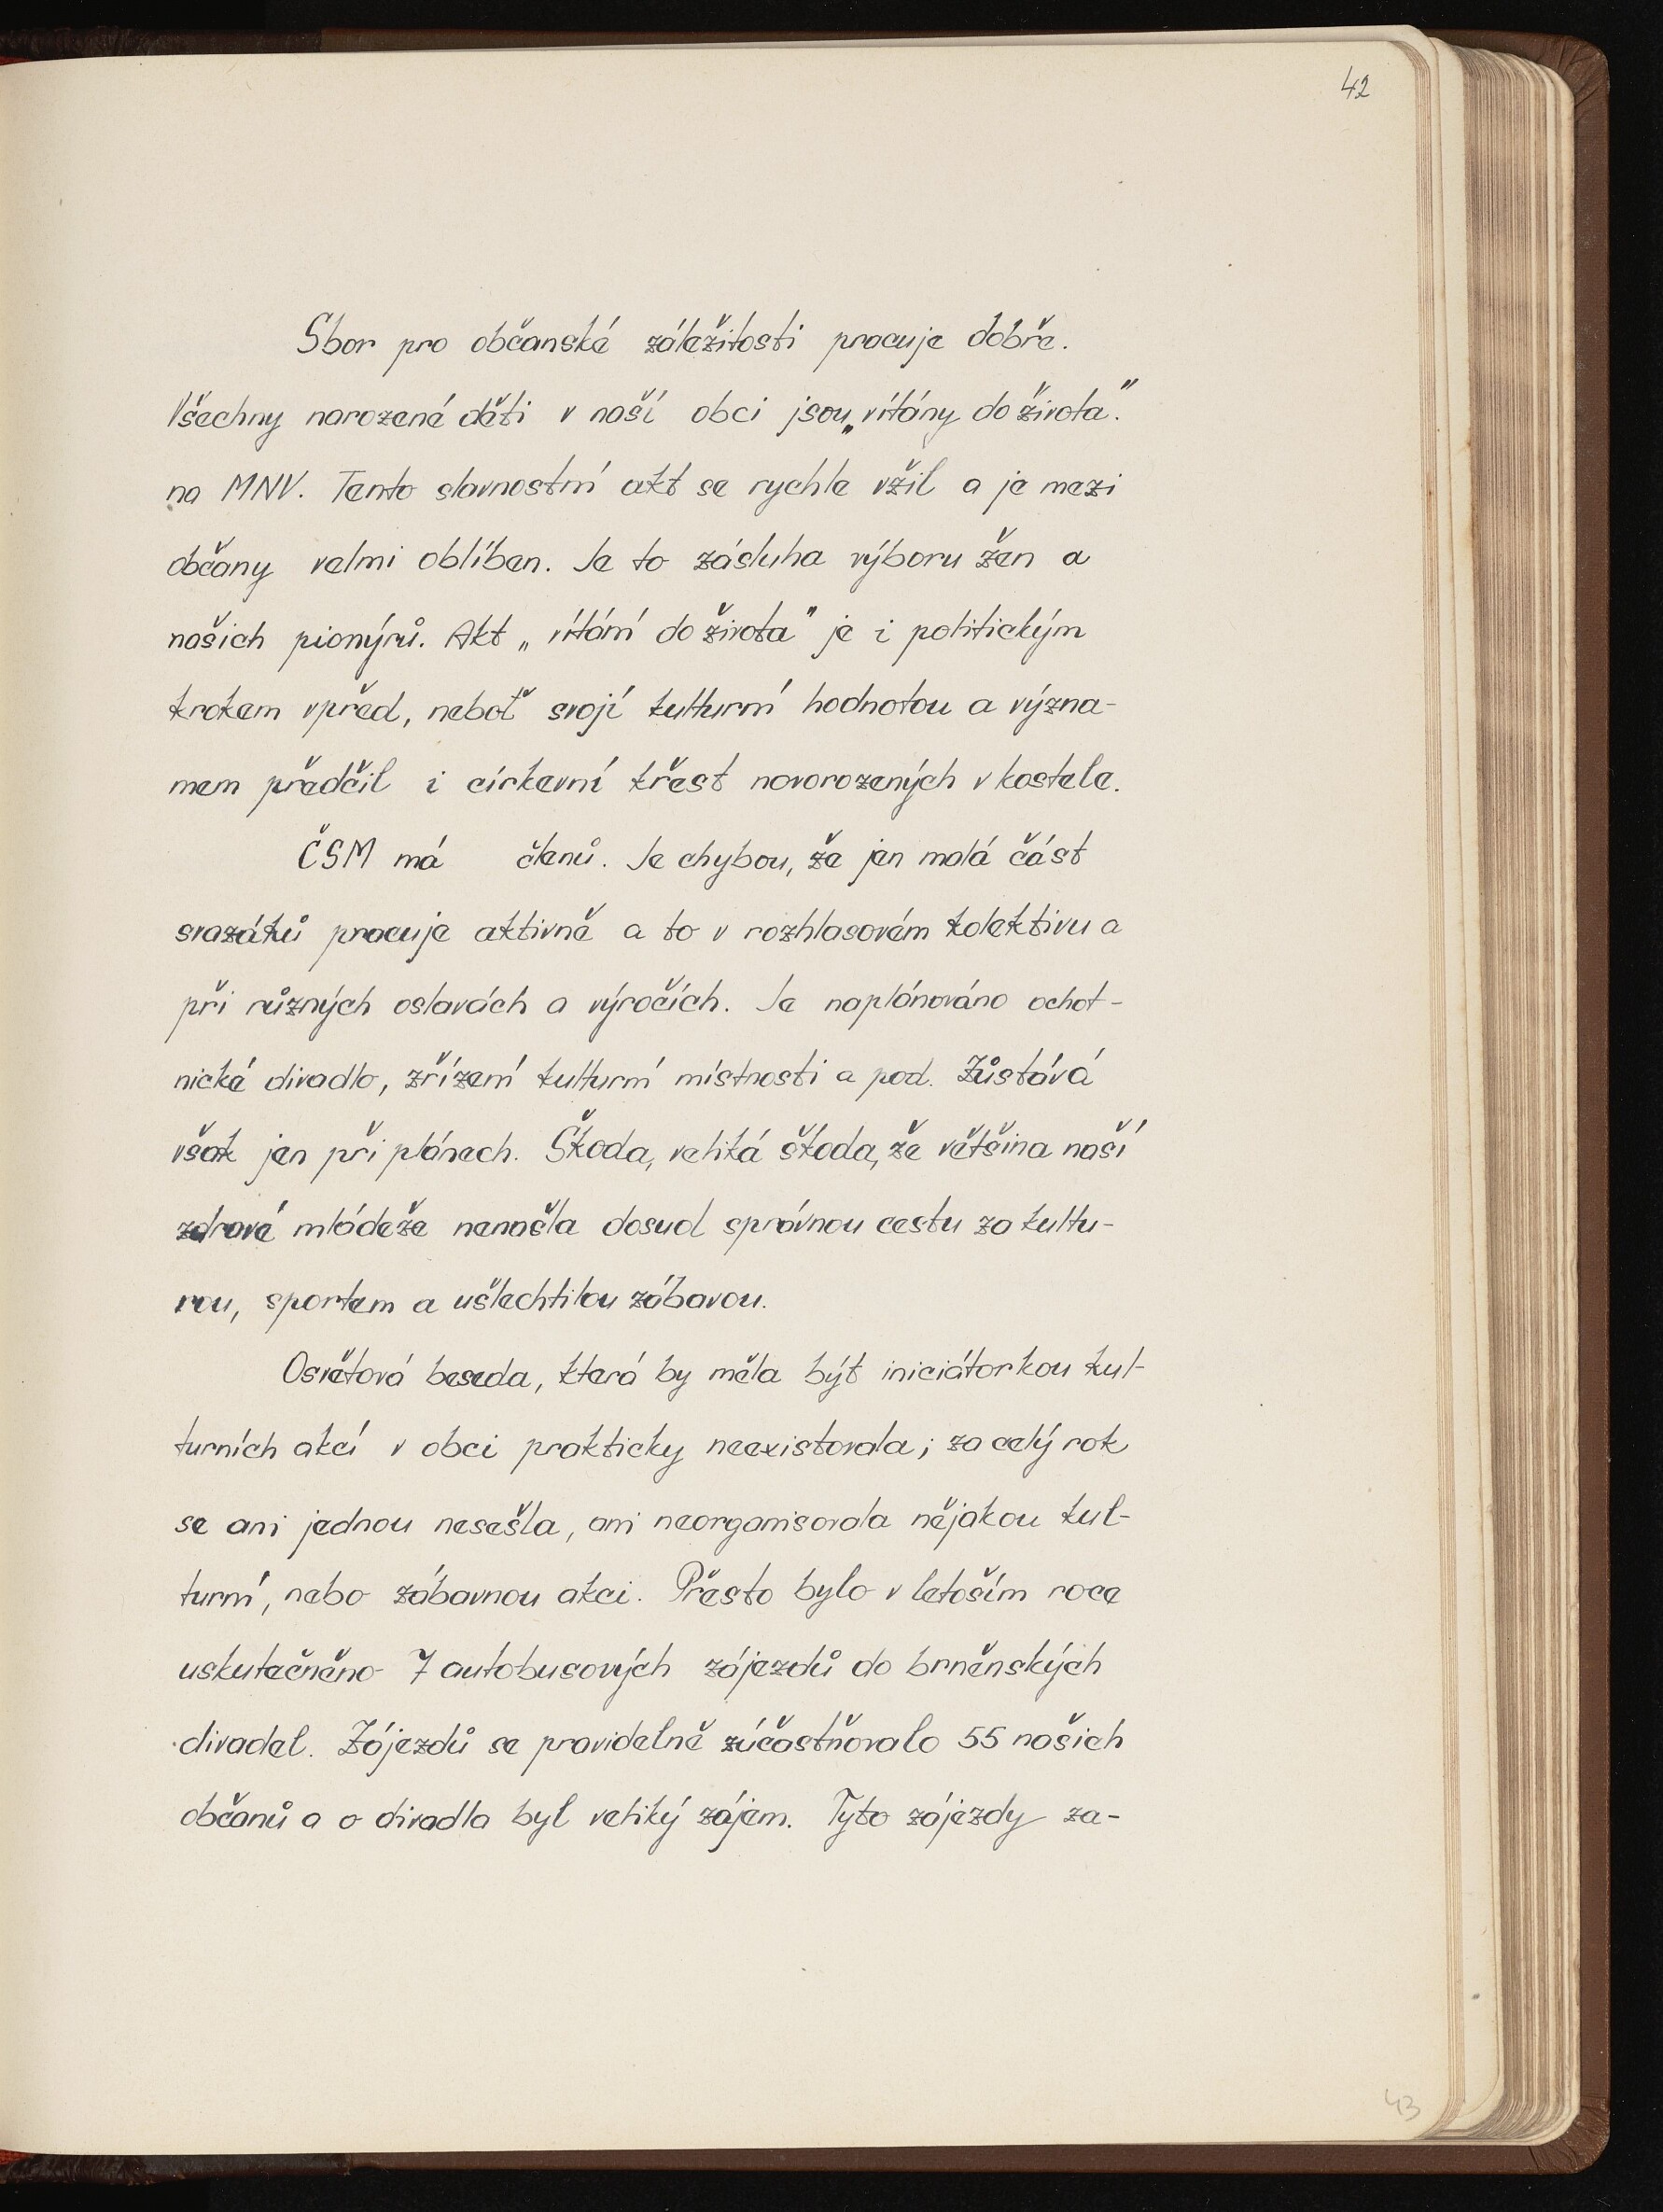 42
Sbor pro občanské záležitosti pracuje dobře.
Všechny narozené děti v naší obci jsou „vítány do života".
na MNV. Tento slavnostní akt se rychle vžil a je mezi
občany velmi oblíben. Je to zásluha výboru žen a
našich pionýrů. Akt „vítání do života" je i politickým
krokem vpřed, neboť svojí kulturní hodnotou a význa-
mem předčil i církevní křest novorozených v kostele.
ČSM má členů. Je chybou, že jen malá část
svazáků pracuje aktivně a to v rozhlasovém kolektivu a
při různých oslavách a výročích. Je naplánováno ochot-
nické divadlo, zřízení kulturní místnosti a pod. Zůstává
však jen při plánech. Škoda, veliká škoda, že většina naší
zdravé mládeže nenašla dosud správnou cestu za kultu-
rou, sportem a ušlechtilou zábavou.
Osvětová beseda, která by měla být iniciátorkou kul-
turních akcí v obci prakticky neexistovala; za celý rok
se ani jednou nesešla, ani neorganisovala nějakou kul-
turní, nebo zábavnou akci. Přesto bylo v letoším roce
uskutečněno 7 autobusových zájezdů do brněnských
divadel. Zájezdů se pravidelně zúčastňovalo 55 našich
občanů a o divadla byl veliký zájem. Tyto zájezdy za-
43